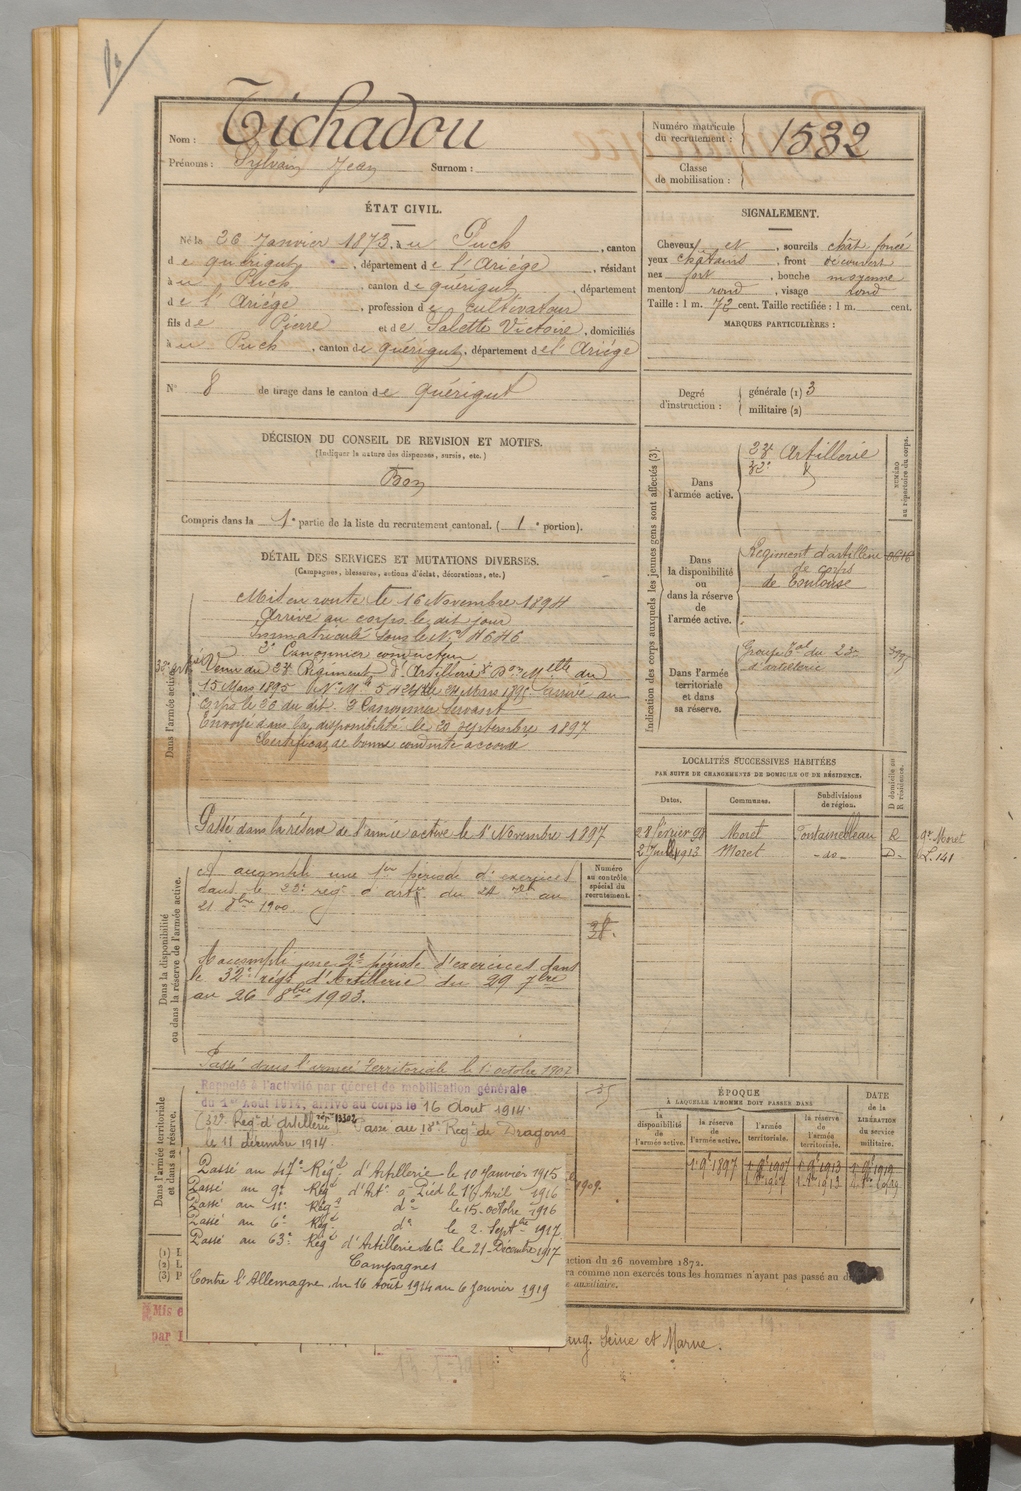 Nom : Tichadou
Prénoms : Sylvain Jean Surnom :
Numéro matricule du recrutement : 1532
Classe de mobilisation :
ÉTAT CIVIL.
Né le 26 Janvier 1873, à u Puch, canton
de quérigut, département de l'Ariége, résidant
à u Puch, canton de quérigut, département
de l'Ariége, profession de cultivateur
fils de Pierre et de Salette Victoire, domiciliés
à u Puch, canton de quérigut, département de l'Ariége
N° 8 de tirage dans le canton de quérigut
SIGNALEMENT.
Cheveux et, sourcils chât foncé
yeux châtains, front découvert
nez fort, bouche moyenne
menton rond, visage rond
Taille : 1 m. 72 cent. Taille rectifiée : 1 m. cent.
MARQUES PARTICULIÈRES :
Degré d'instruction : générale (1) 3
militaire (2)
DÉCISION DU CONSEIL DE REVISION ET MOTIFS.
(Indiquer la nature des dispenses, sursis, etc.)
Bon
Compris dans la 1e partie de la liste du recrutement cantonal. (1e portion).
DÉTAIL DES SERVICES ET MUTATIONS DIVERSES.
(Campagnes, blessures, actions d'éclat, décorations, etc.)
Dans l'armée active.
Mis en route le 16 Novembre 1894
Arrivé au corps le dit jour
Immatriculé sous le N°
2e Canonnier conducteur
Venu du Régiment d'Artillerie Don Mlle du
15 Mars 1895 Mars 1895 arrivé au
corps le 26 du dit. 2 Canonnier servant
Envoyé dans la disponibilité le 20 septembre 1897
Certificat de bonne conduite accordé
Passé dans la réserve de l'armée active le 1er Novembre 1897
Dans la disponibilité ou dans la réserve de l'armée active.
A accompli une 1ère période d'exercices
dans le 23e regt d'artie du 24 7bre au
21 8bre 1900.
A accompli une 2e période d'exercices dans
le 32e régt d'Artillerie du 29 7bre
au 26 8bre 1903.
Passé dans l'armée territoriale le 1er octobre 1907
Numéro au contrôle spécial du recrutement.
Indication des corps auxquels les jeunes gens sont affectés (3).
NUMÉRO au répertoire du corps.
Dans l'armée active.
Artillerie
32e
Dans la disponibilité ou dans la réserve de l'armée active.
Régiment d'artillerie
de corps
de Toulouse
Dans l'armée territoriale et dans sa réserve.
Groupe tal du 23e
d'artillerie
LOCALITÉS SUCCESSIVES HABITÉES
PAR SUITE DE CHANGEMENTS DE DOMICILE OU DE RÉSIDENCE.
Dates. Communes. Subdivisions de région. D domicile ou R résidence.
28 février 98 Moret Fontainebleau R
2 Juillet 1913 Moret - do - D.
gr. Moret
L. 141
Dans l'armée territoriale et dans sa réserve.
Rappelé à l'activité par décret de mobilisation générale
du 1er Août 1914, arrivé au corps le 16 Août 1914.
(32e Régt d'Artillerie) Passé au 18e Régt de Dragons
le 11 décembre 1914.
Passé au 47e Régt d'Artillerie le 10 Janvier 1915
Passé au 9e Régt d'Art. à Pied le 16 Avril 1916
Passé au 11e Régt do le 15 octobre 1916
Passé au 6e Régt do le 2 Septbre 1917
Passé au 63e Régt d'Artillerie de C. le 21 Décembre 1917
Campagnes
Contre l'Allemagne du 16 Août 1914 au 6 Janvier 1919
1909.
ÉPOQUE
A LAQUELLE L'HOMME DOIT PASSER DANS
la disponibilité de l'armée active. la réserve de l'armée active. l'armée territoriale. la réserve de l'armée territoriale.
DATE de la LIBÉRATION du service militaire.
1er 9bre 1897
(1) L
(2) L
(3) P
ction du 26 novembre 1872.
ra comme non exercés tous les hommes n'ayant pas passé au
auxiliaire.
Mis e
par
Seine et Marne.